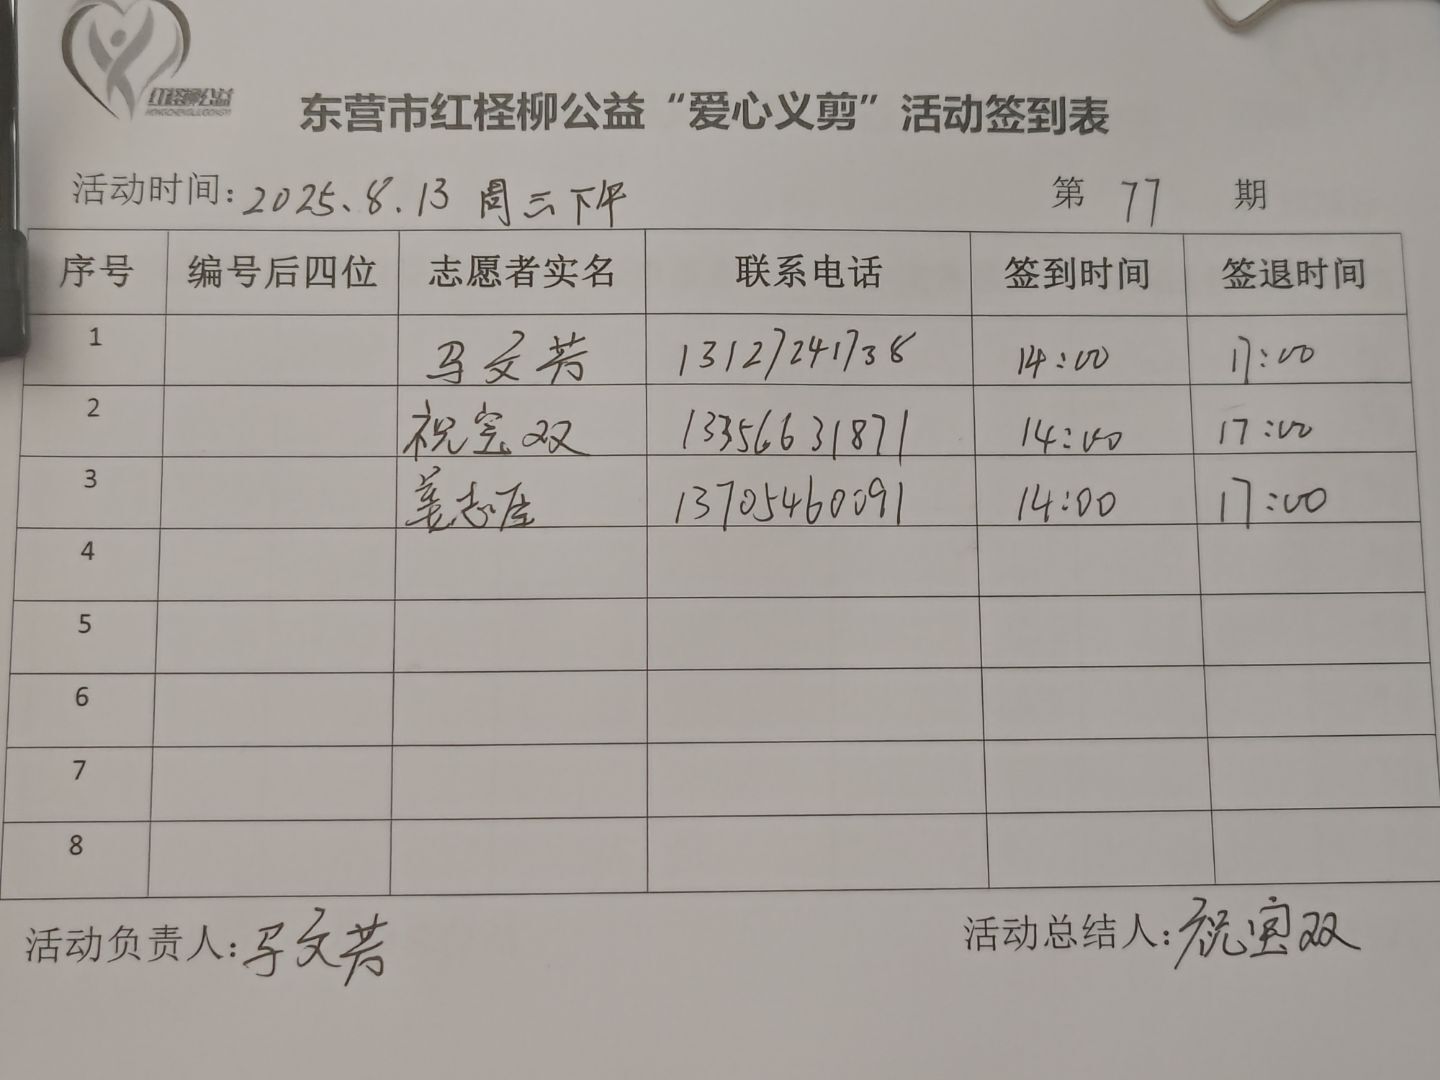 红柽柳公益
HONGCHENGLIUGONGYI
东营市红柽柳公益“爱心义剪”活动签到表
活动时间:2025.8.13 周三下午 第 77 期
序号 编号后四位 志愿者实名 联系电话 签到时间 签退时间
1 马文芳 13127241738 14:00 17:00
2 祝宝双 13356631871 14:00 17:00
3 姜志 13705460091 14:00 17:00
4
5
6
7
8
活动负责人:马文芳 活动总结人:祝宝双